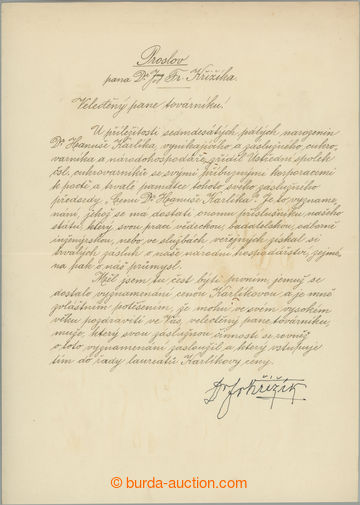 Proslov
pana Dr. Fr. Křižíka.
Velectěný pane továrníku!
U příležitosti sedmdesátých pátých narozenin
Dr Hanuše Karlíka, vynikajícího a zasloužilého cukro-
varníka a národohospodáře, zřídil Ústřední spolek
čsl. cukrovarníků se svými příbuznými korporacemi
k poctě a trvalé památce tohoto svého zasloužilého
předsedy „Cenu Dr Hanuše Karlíka". Je to vyzname-
nání, jehož se má dostati onomu příslušníku našeho
státu, který svou prací vědeckou, badatelskou, odborně
inženýrskou, nebo ve službách veřejných získal si
trvalých zásluh o naše národní hospodářství, zejmé-
na pak o náš průmysl.
Měl jsem tu čest býti prvním, jemuž se
dostalo vyznamenání cenou Karlíkovou a je mně
zvláštním potěšením, že mohu ve svém vysokém
věku pozdraviti ve Vás, velectěný pane továrníku,
muže, který svou záslužnou činností se rovněž
o toto vyznamenání zasloužil a který vstupuje
tím do řady laureátů Karlíkovy ceny.
Dr Fr Křižík
© burda-auction.com